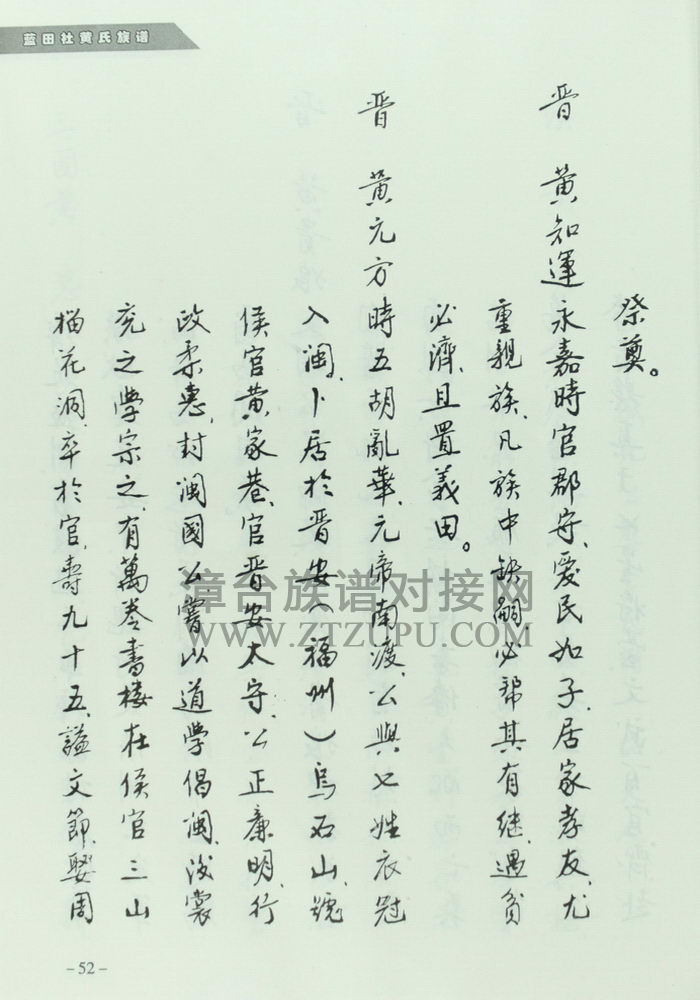 蓝田社黄氏族谱
祭奠。
晋 黄知運永嘉時官郡守、愛民如子、居家孝友、尤
重親族、凡族中缺嗣、必帮其有继、遇貧
必濟、且置義田。
晋 黄元方時五胡亂華、元帝南渡、公與七姓衣冠
入闽、卜居於晋安(福州)烏石山、號
侯官黄家巷、官晋安太守、公正廉明、行
政柔惠、封闽國公、嘗以道學倡闽、後裳
兖之學宗之、有萬卷書楼在侯官三山
榴花洞、卒於官、壽九十五、謚文節、娶周
漳台族谱对接网
WWW.ZTZUPU.COM
-52-